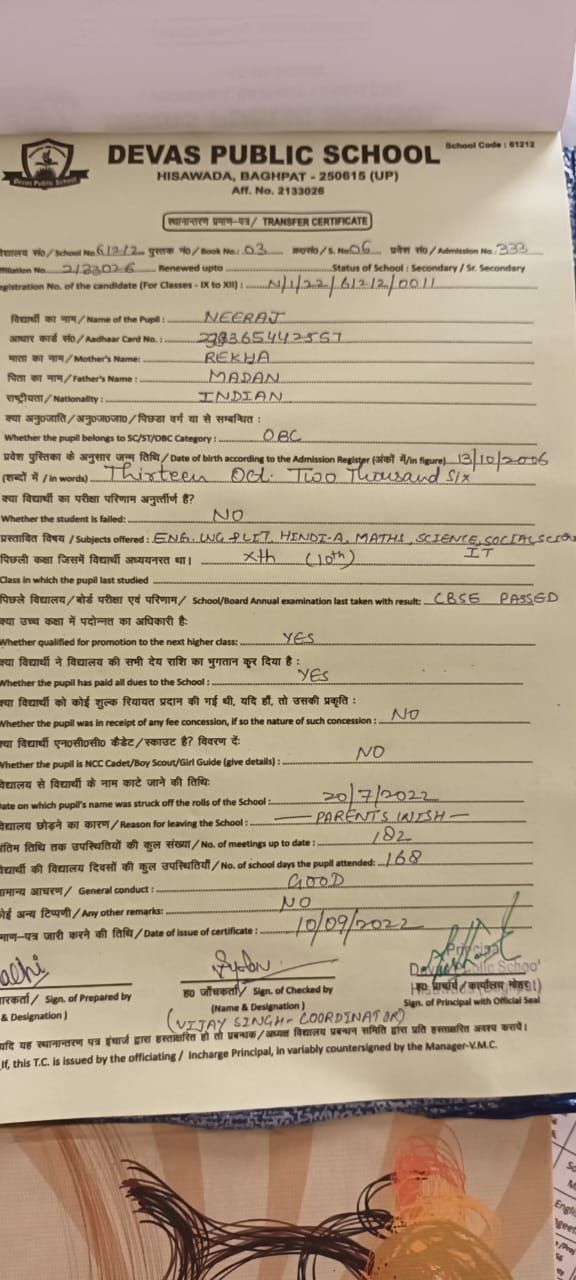 School Code : 61212
DEVAS PUBLIC SCHOOL
Devas Public School
HISAWADA, BAGHPAT - 250615 (UP)
Aff. No. 2133026
स्थानान्तरण प्रमाण-पत्र/ TRANSFER CERTIFICATE
द्यालय सं०/School No. 61212 पुस्तक सं०/Book No.: 03 क्र०सं०/S. No 06 प्रवेश सं०/Admission No. 333
filiation No. 2133026 Renewed upto Status of School : Secondary / Sr. Secondary
egistration No. of the candidate (For Classes - IX to XII) : N/1/22/61212/0011
विद्यार्थी का नाम/Name of the Pupil : NEERAJ
आधार कार्ड सं०/Aadhaar Card No. :
माता का नाम/Mother's Name: REKHA
पिता का नाम/Father's Name : MADAN
राष्ट्रीयता/Nationality : INDIAN
क्या अनु०जाति/अनु०ज०जा०/पिछडा वर्ग या से सम्बन्धित :
Whether the pupil belongs to SC/ST/OBC Category : OBC
प्रवेश पुस्तिका के अनुसार जन्म तिथि/Date of birth according to the Admission Register (अंकों में/in figure) 13/10/2006
(शब्दों में /in words) Thirteen Oct. Two Thousand Six
क्या विद्यार्थी का परीक्षा परिणाम अनुत्तीर्ण है?
Whether the student is failed: NO
प्रस्तावित विषय /Subjects offered : ENG. LNG & LIT, HINDI-A, MATHS, SCIENCE, SOCIAL
IT
पिछली कक्षा जिसमें विद्यार्थी अध्ययनरत था। Xth (10th)
Class in which the pupil last studied
पिछले विद्यालय/बोर्ड परीक्षा एवं परिणाम/ School/Board Annual examination last taken with result: CBSE PASSED
क्या उच्च कक्षा में पदोन्नत का अधिकारी है:
Whether qualified for promotion to the next higher class: YES
क्या विद्यार्थी ने विद्यालय की सभी देय राशि का भुगतान कर दिया है :
Whether the pupil has paid all dues to the School : YES
क्या विद्यार्थी को कोई शुल्क रियायत प्रदान की गई थी, यदि हाँ, तो उसकी प्रकृति :
Whether the pupil was in receipt of any fee concession, if so the nature of such concession : NO
क्या विद्यार्थी एन०सी०सी० कैडेट/स्काउट है? विवरण दें:
Whether the pupil is NCC Cadet/Boy Scout/Girl Guide (give details) : NO
विद्यालय से विद्यार्थी के नाम काटे जाने की तिथि:
ate on which pupil's name was struck off the rolls of the School : 20/7/2022
विद्यालय छोड़ने का कारण/Reason for leaving the School : PARENTS WISH
अंतिम तिथि तक उपस्थितियों की कुल संख्या/No. of meetings up to date : 182
विद्यार्थी की विद्यालय दिवसों की कुल उपस्थितियाँ/No. of school days the pupil attended: 168
सामान्य आचरण/ General conduct : GOOD
कोई अन्य टिप्पणी/Any other remarks: NO
माण-पत्र जारी करने की तिथि/Date of issue of certificate : 10/09/2022
Principal
ह० जाँचकर्ता/ Sign. of Checked by
ह० प्राचार्य/कार्यालय मोहर
ारकर्ता/ Sign. of Prepared by
(Name & Designation)
Sign. of Principal with Official Seal
& Designation )
(VIJAY SINGH- COORDINATOR)
यदि यह स्थानान्तरण पत्र इंचार्ज द्वारा हस्ताक्षरित हो तो प्रबन्धक/अध्यक्ष विद्यालय प्रबन्धन समिति द्वारा प्रति हस्ताक्षरित अवश्य करायें।
If, this T.C. is issued by the officiating / Incharge Principal, in variably countersigned by the Manager-V.M.C.